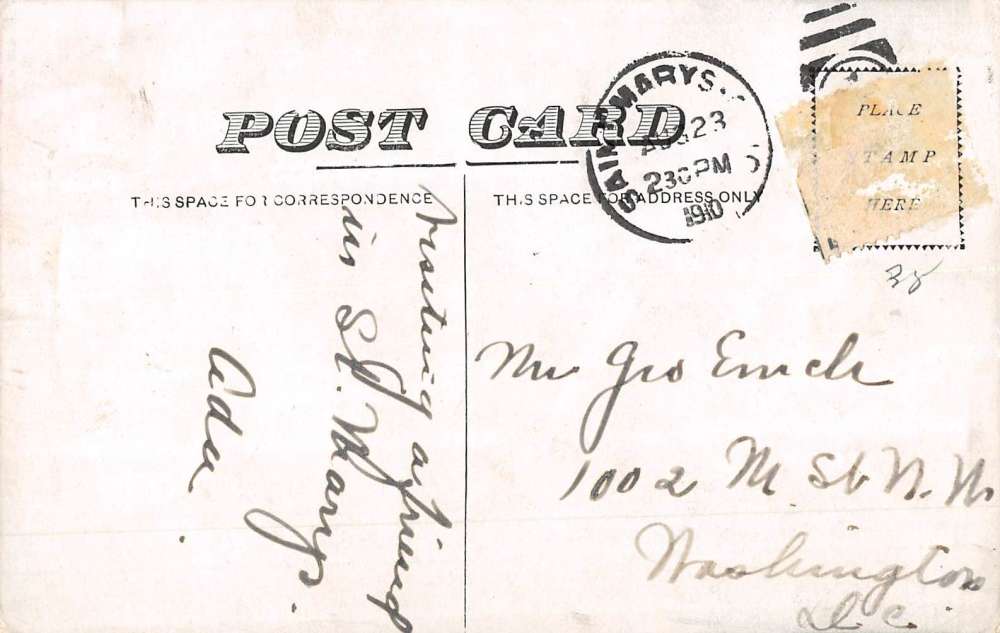 POST CARD
THIS SPACE FOR CORRESPONDENCE
THIS SPACE FOR ADDRESS ONLY
SAINT MARYS
AUG 23
230 PM
1910
PLACE
STAMP
HERE
38
visiting a friend
in St. Marys.
Ada.
Mr Geo Emch
1002 M St N.W
Washington
D.C.